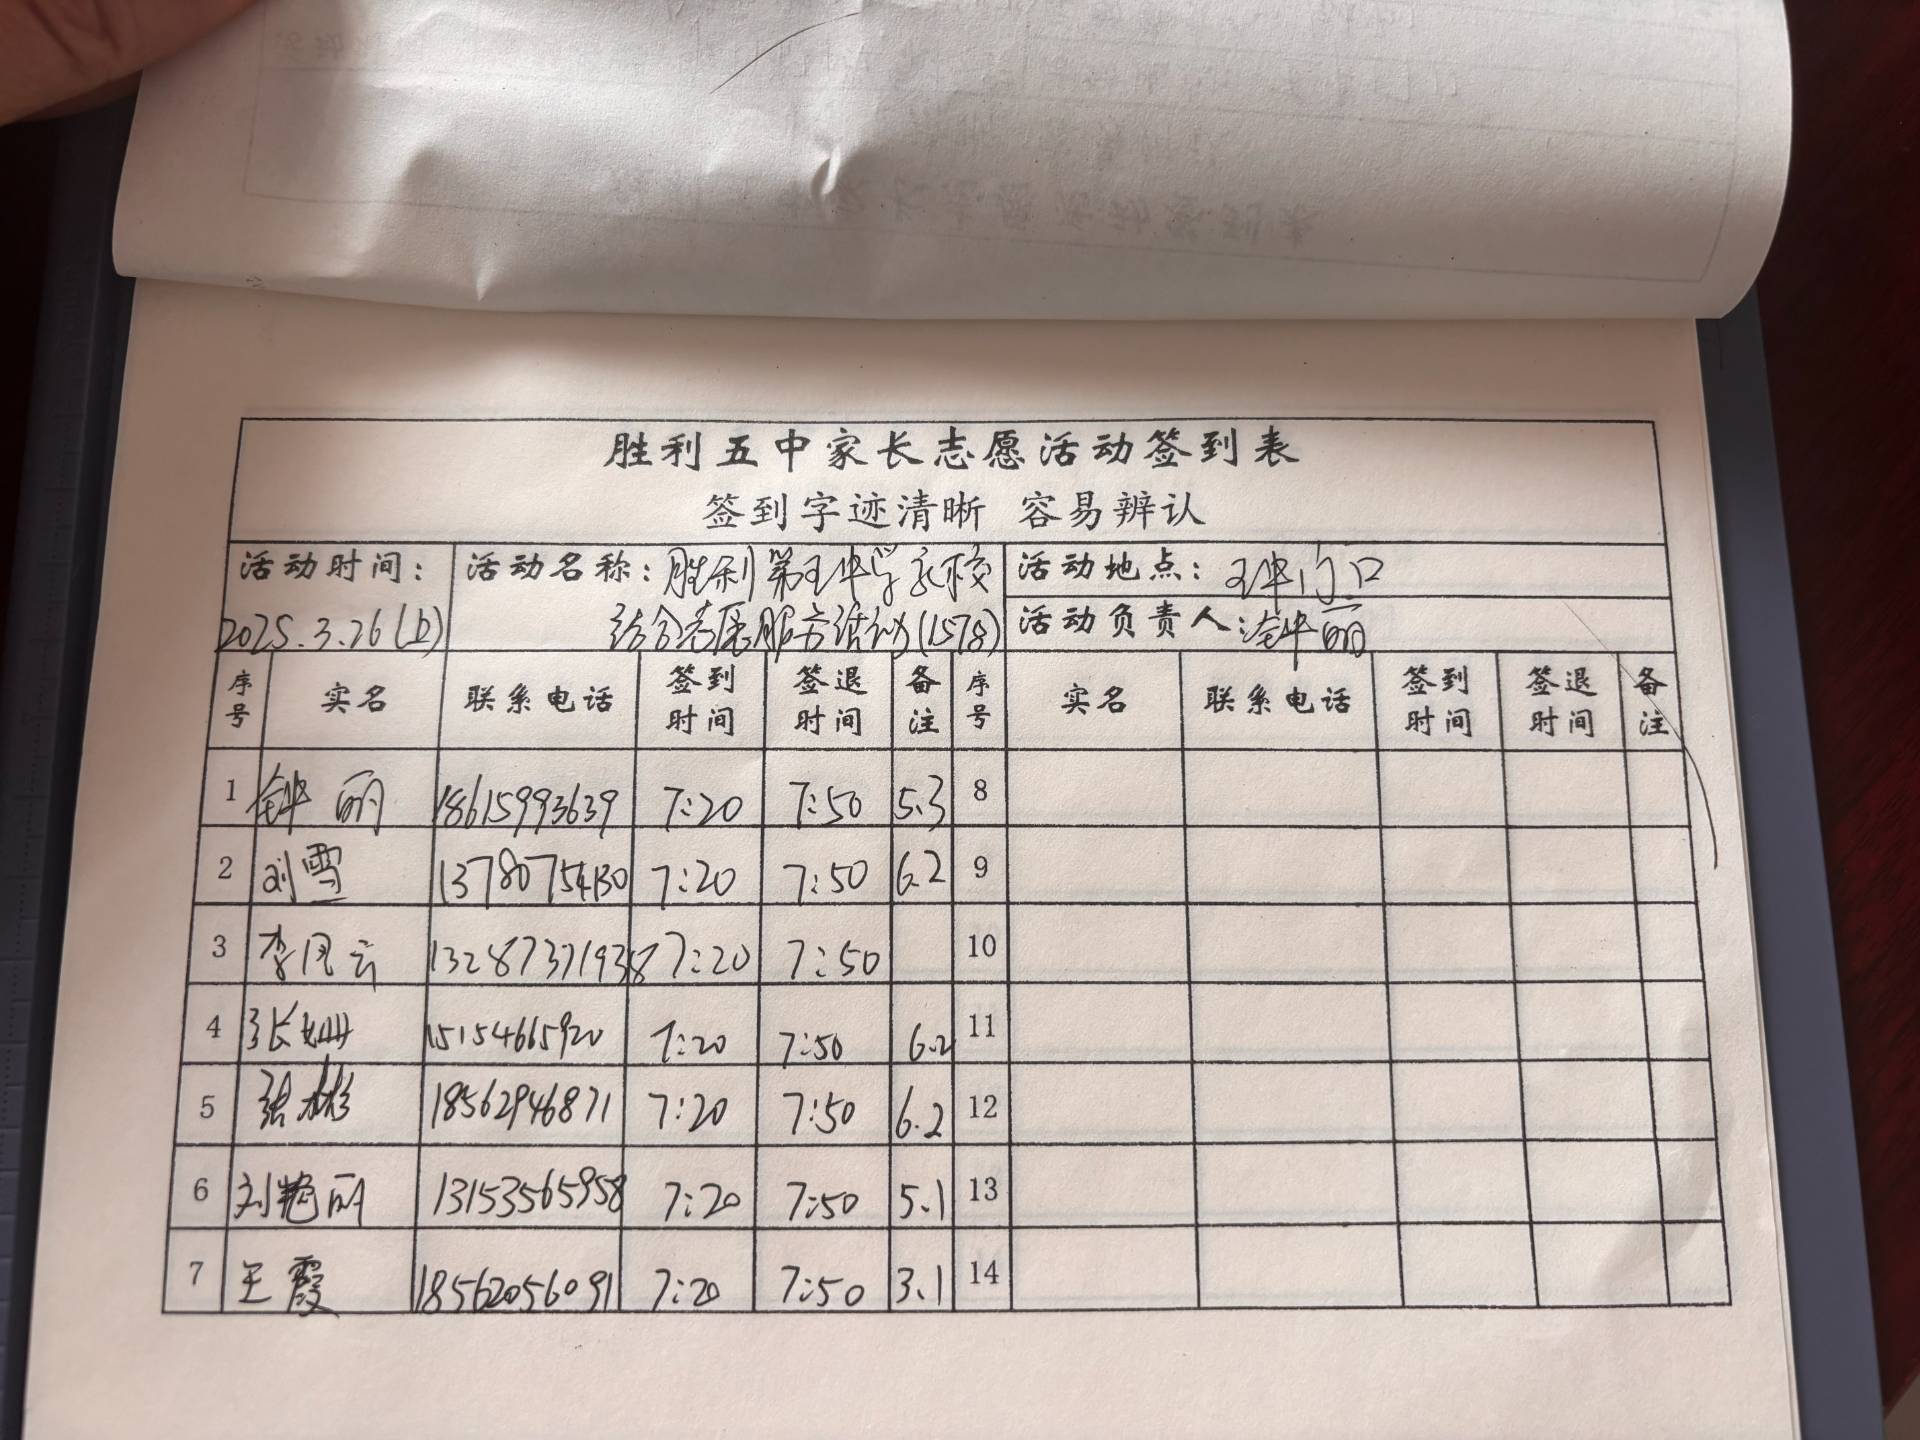 胜利五中家长志愿活动签到表
签到字迹清晰 容易辨认
活动时间： 活动名称：胜利第五中学家校 活动地点：五中门口
2025.3.26(上) 结合志愿服务活动(1578) 活动负责人：钟丽
序号 实名 联系电话 签到时间 签退时间 备注 序号 实名 联系电话 签到时间 签退时间 备注
1 钟丽 18615993639 7:20 7:50 5.3 8
2 刘雪 13780754130 7:20 7:50 6.2 9
3 李凤云 13287371938 7:20 7:50 10
4 张姗 15154665920 7:20 7:50 6.2 11
5 张彬 18562946871 7:20 7:50 6.2 12
6 刘艳丽 13153565958 7:20 7:50 5.1 13
7 王霞 18562056091 7:20 7:50 3.1 14